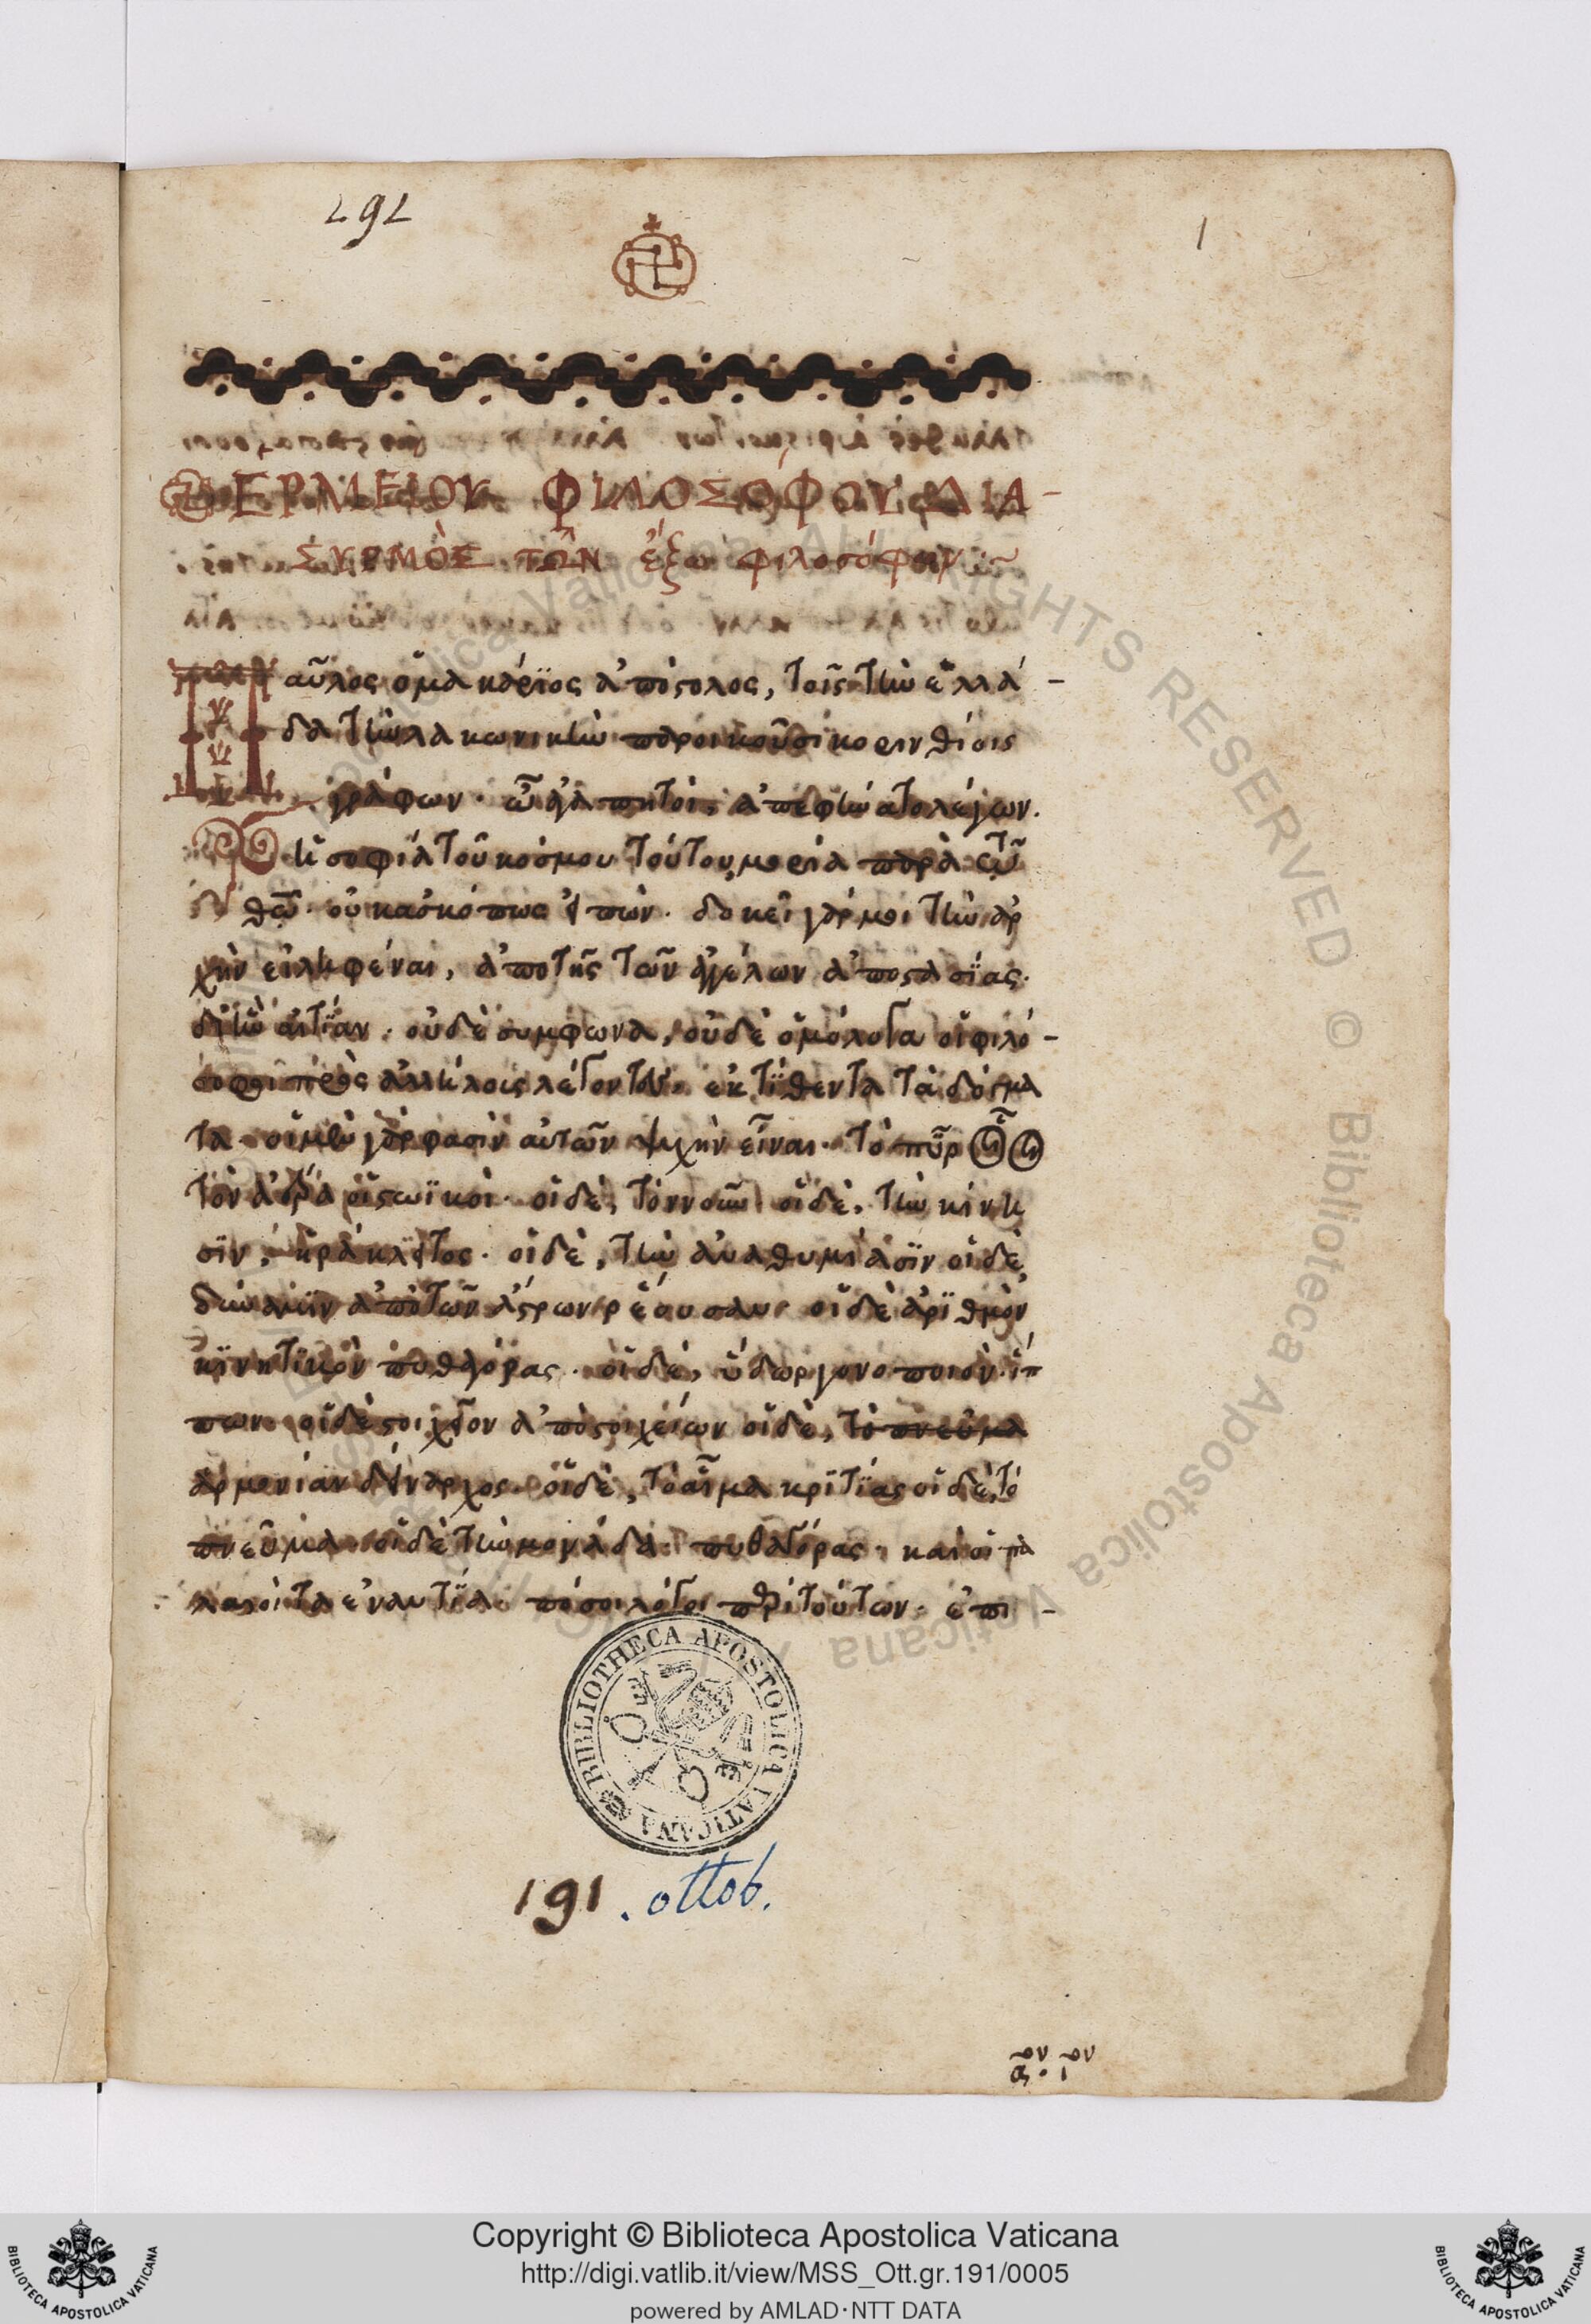 191
1
ΕΡΜΕΙΟΥ ΦΙΛΟΣΌΦΟΥ ΔΙΑ-
ΣΥΡΜῸΣ ΤΩ͂Ν ἔξω φιλοσόφων
Παῦλος ὁ μακάριος ἀπόστολος, τοῖς τὴν ἑλλά-
δα τὴν λακωνικὴν παροικοῦσι κορινθίοις
γράφων. ὦ ἀγαπητοί, ἀπεφήνατο λέγων.
ἡ σοφία τοῦ κόσμου τούτου, μωρία παρὰ τῷ
θῶ. οὐκ ἀσκόπως εἰπών. δοκεῖ γάρ μοι τὴν ἀρ
χὴν εἰληφέναι, ἀπὸ τῆς τῶν ἀγγέλων ἀποστασίας.
δι ἣν αἰτίαν. οὐδὲ σύμφωνα, οὐδὲ ὁμόλογα οἱ φιλό-
σοφοι πρὸς ἀλλήλοις λέγοντες. ἐκτίθενται τὰ δόγμα
τα. οἱ μὲν γάρ φασὶν αὐτῶν ψυχὴν εἶναι. τὸ πῦρ
τὸν ἀέρα οἱ στωϊκοί. οἱ δὲ, τὸν νοῦν. οἱ δὲ, τὴν κίνη
σιν, ἡράκλειτος. οἱ δὲ, τὴν ἀναθυμίασιν οἱ δὲ
δύναμιν ἀπὸ τῶν ἄστρων ῥέουσαν. οἱ δὲ ἀριθμὸν
κινητικὸν πυθαγόρας. οἱ δὲ, ὕδωρ γονοποιὸν. ἵπ
πων. οἱ δὲ στοιχεῖον ἀπὸ στοιχείων οἱ δὲ, τὸ πνεῦμα
ἁρμονίαν δείναρχος. οἱ δὲ, τὸ αἷμα κριτίας οἱ δὲ, τὸ
πνεῦμα. οἱ δὲ τὴν μονάδα. πυθαγόρας. καὶ οἱ πα
λαιοὶ τὰ ἐναντία. πόσοι λόγοι περὶ τούτων. ἐπι-
BIBLIOTHECA APOSTOLICA VATICANA
191. ottob.
Copyright © Biblioteca Apostolica Vaticana
http://digi.vatlib.it/view/MSS_Ott.gr.191/0005
powered by AMLAD·NTT DATA
BIBLIOTECA APOSTOLICA VATICANA
BIBLIOTECA APOSTOLICA VATICANA